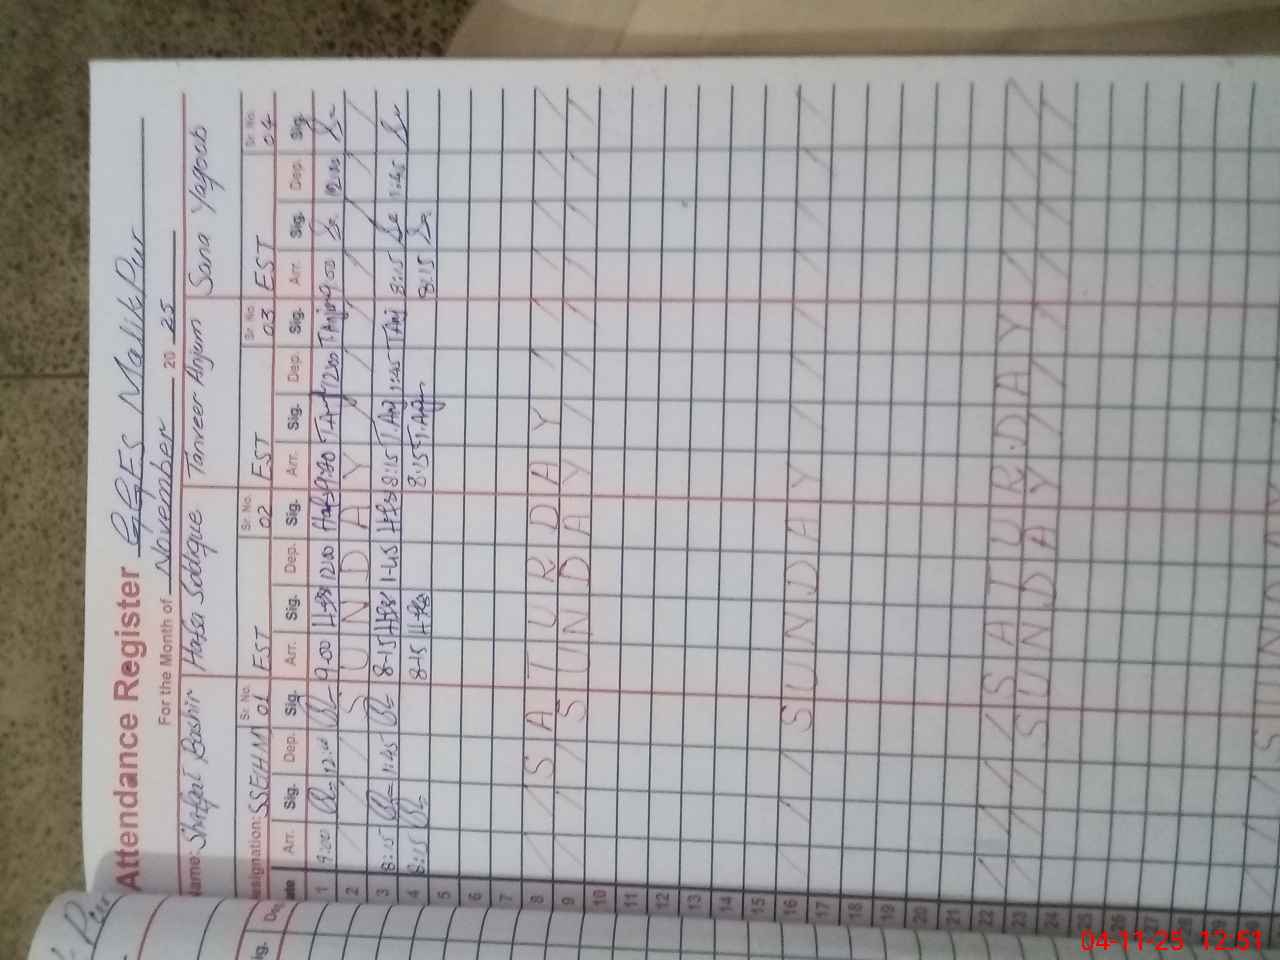 Attendance Register GGES MallikPur
For the Month of November 20 25
Name: Shafqat Bashir Hafsa Siddique Tanveer Anjum Sana Yaqoob
Designation: SSE/HM Sr. No. 01 EST Sr. No. 02 EST Sr. No. 03 EST Sr. No. 04
Date Arr. Sig. Dep. Sig. Arr. Sig. Dep. Sig. Arr. Sig. Dep. Sig. Arr. Sig. Dep. Sig.
1 9:00 12:00 9:00 12:00 9:00 12:00 9:00 12:00
2 SUNDAY
3 8:15 1:45 8-15 1-45 8:15 1:45 8:15 1:45
4 8:15 8-15 8:15 8:15
5
6
7
8 SATURDAY
9 SUNDAY
10
11
12
13
14
15
16 SUNDAY
17
18
19
20
21
22 SATURDAY
23 SUNDAY
24
25
26
27
28
29
30 SUNDAY
04-11-25 12:51